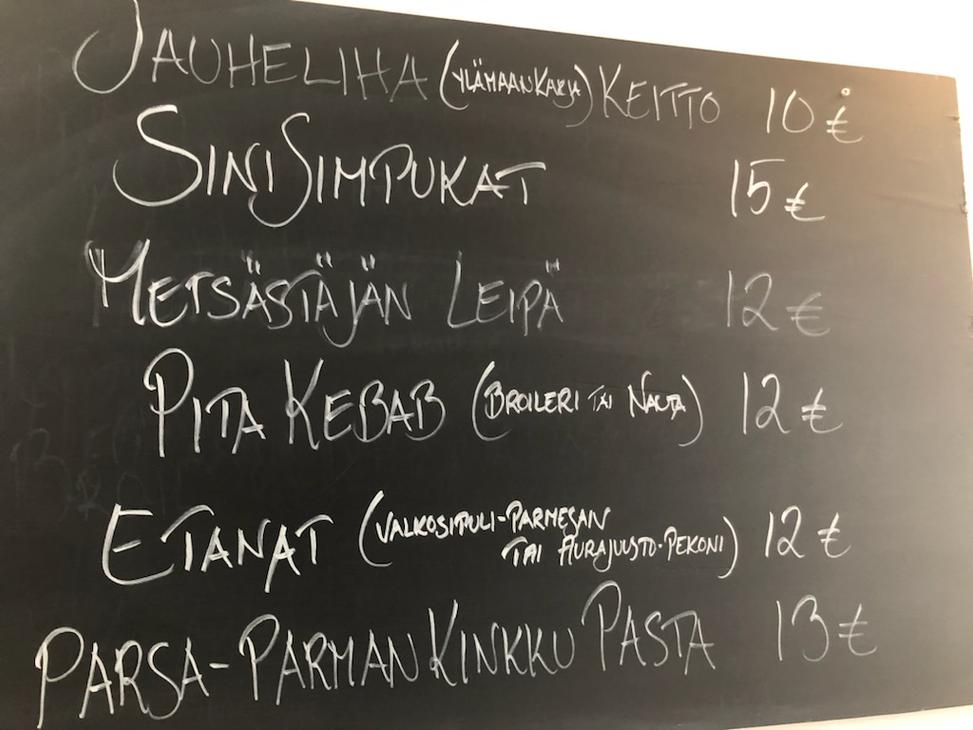 JAUHELIHA (YLÄMAANKARJA) KEITTO 10 €
SINISIMPUKAT 15 €
METSÄSTÄJÄN LEIPÄ 12 €
PITA KEBAB (BROILERI TAI NAUTA) 12 €
ETANAT (VALKOSIPULI-PARMESAN 12 €
TAI AURAJUUSTO-PEKONI)
PARSA-PARMANKINKKU PASTA 13 €